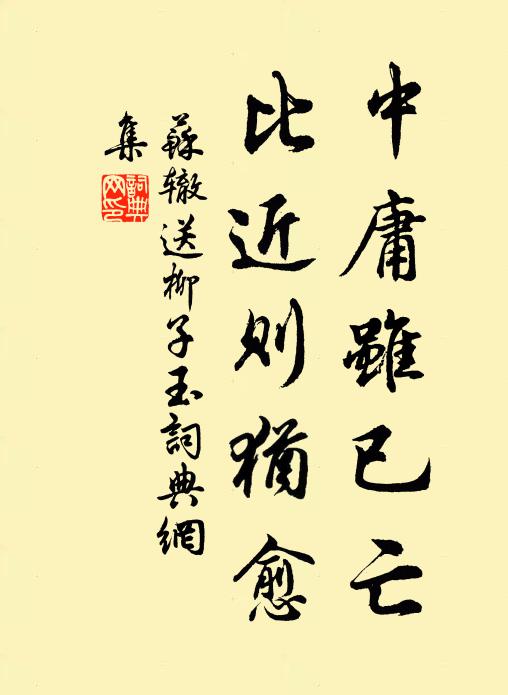 中庸雖已亡
比近則猶愈
蘇辙送柳子玉詞典網
集
詞典
网印